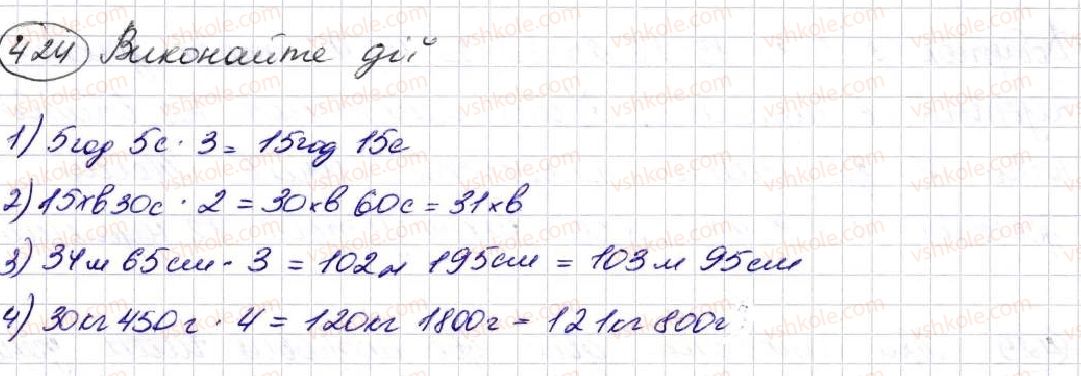 424 Виконайте дії
1) 5год 5с · 3 = 15год 15с
2) 15хв30с · 2 = 30хв 60с = 31хв
3) 34м 65см · 3 = 102м 195см = 103м 95см
4) 30кг 450г · 4 = 120кг 1800г = 121кг 800г